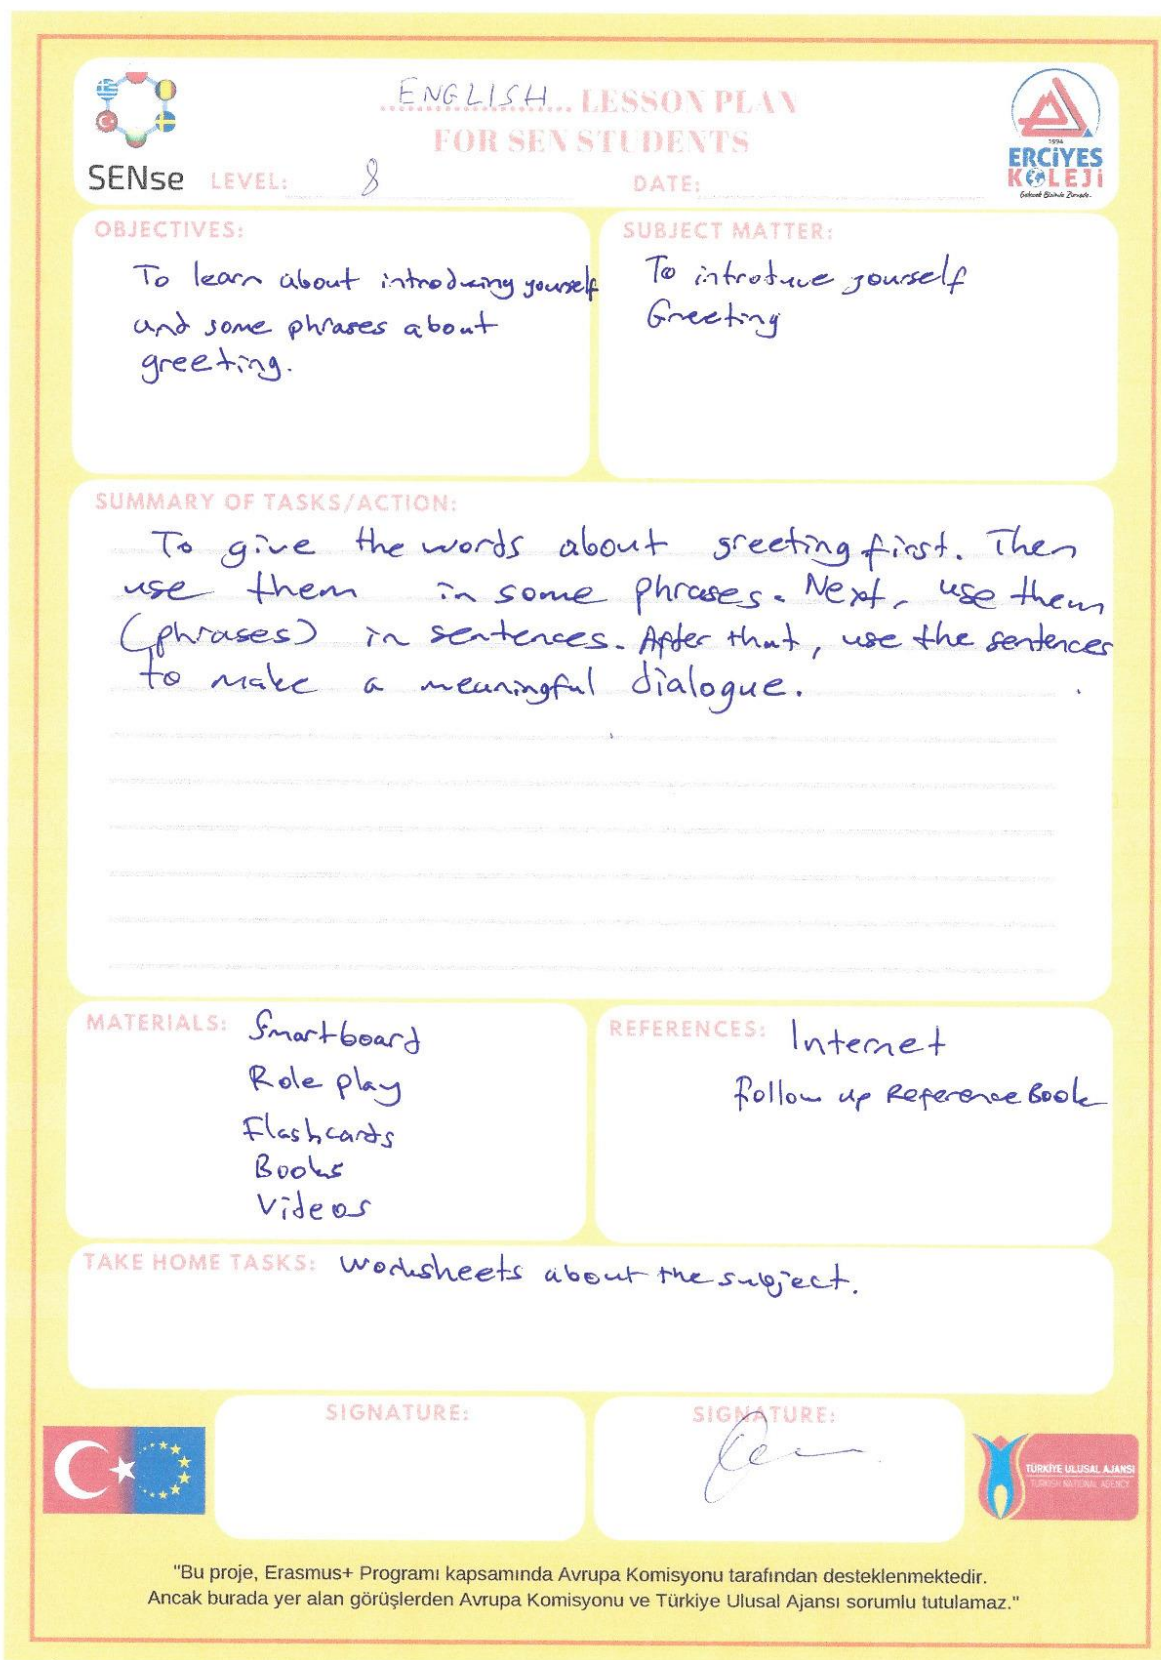 ENGLISH LESSON PLAN
FOR SEN STUDENTS
SENse
LEVEL: 8
DATE:
1994
ERCİYES
KOLEJİ
OBJECTIVES:
To learn about introducing yourself
and some phrases about
greeting.
SUBJECT MATTER:
To introduce yourself
Greeting
SUMMARY OF TASKS/ACTION:
To give the words about greeting first. Then
use them in some phrases. Next, use them
(phrases) in sentences. After that, use the sentences
to make a meaningful dialogue.
MATERIALS: Smartboard
Role play
Flashcards
Books
Videos
REFERENCES: Internet
Follow up Reference Book
TAKE HOME TASKS: Worksheets about the subject.
SIGNATURE:
SIGNATURE:
TÜRKİYE ULUSAL AJANSI
TURKISH NATIONAL AGENCY
"Bu proje, Erasmus+ Programı kapsamında Avrupa Komisyonu tarafından desteklenmektedir.
Ancak burada yer alan görüşlerden Avrupa Komisyonu ve Türkiye Ulusal Ajansı sorumlu tutulamaz."